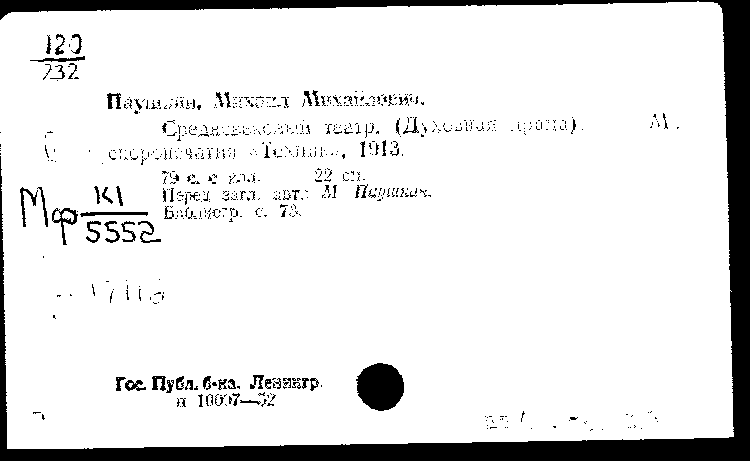 120
232
Паушкин, Михаил Михайлович.
Средневековый театр. (Духовная драма). М.
скоропечатня «Техник», 1913.
79 с. с илл. 22 см.
Перед загл. авт.: М Паушкин.
Библиогр. с. 78.
Мф К1
5552
Гос. Публ. б-ка. Ленингр.
п 10007—52